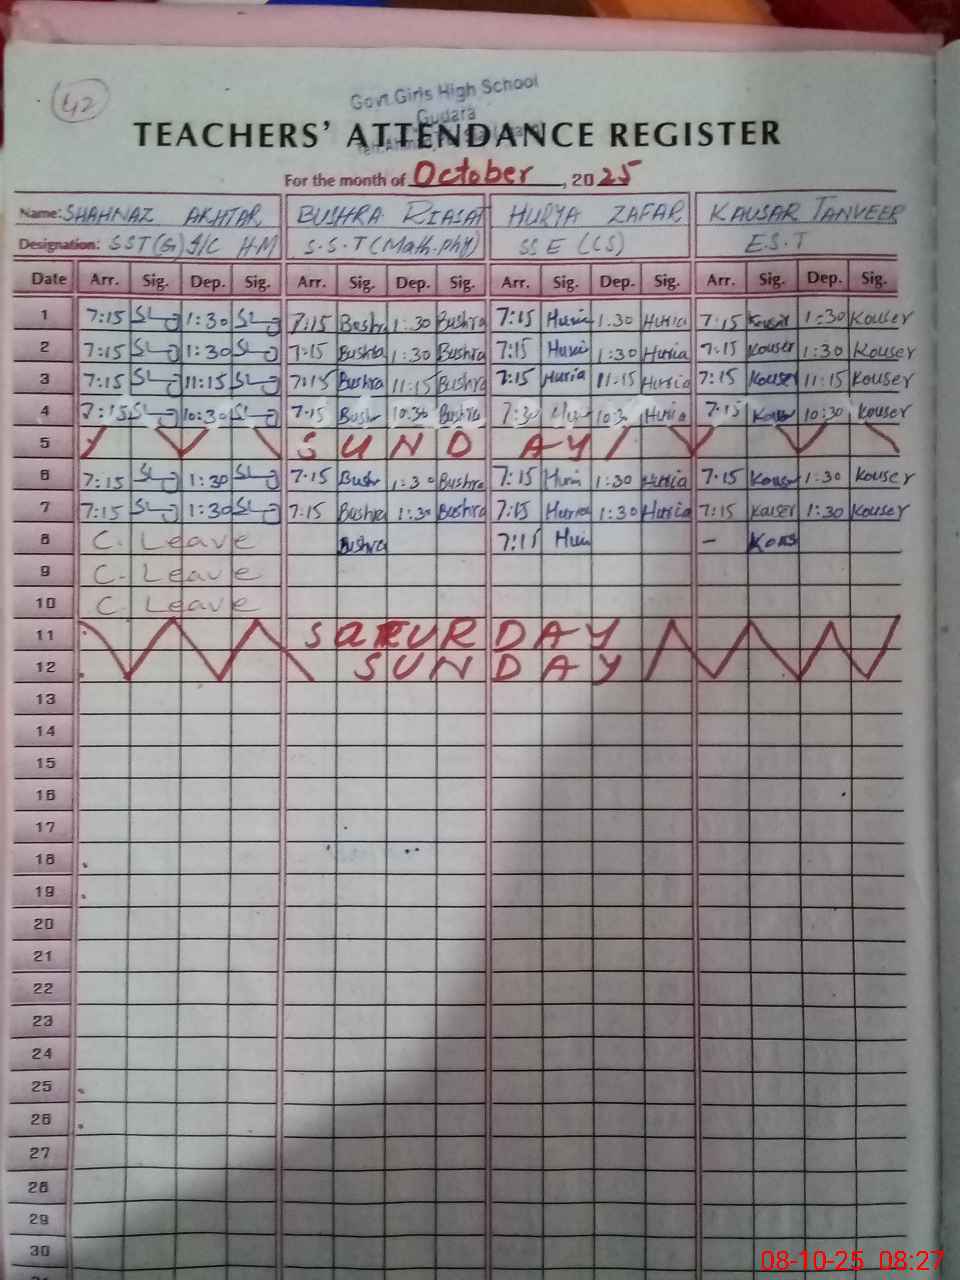 42
Govt Girls High School
Gudara
TEACHERS' ATTENDANCE REGISTER
For the month of October, 2025
Name: SHAHNAZ AKHTAR BUSHRA RIASAT HURYA ZAFAR KAUSAR TANVEER
Designation: SST(G) I/C HM S.S.T (Math.phy) SSE (CS) E.S.T
Date Arr. Sig. Dep. Sig. Arr. Sig. Dep. Sig. Arr. Sig. Dep. Sig. Arr. Sig. Dep. Sig.
1 7:15 1:30 7:15 Bushra 1:30 Bushra 7:15 Huria 1:30 Huria 7:15 Kouser 1:30 Kouser
2 7:15 1:30 7:15 Bushra 1:30 Bushra 7:15 Huria 1:30 Huria 7:15 Kouser 1:30 Kouser
3 7:15 11:15 7:15 Bushra 11:15 Bushra 7:15 Huria 11:15 Huria 7:15 Kouser 11:15 Kouser
4 7:15 10:30 7:15 Bushr 10:30 Bushra 7:30 10:3 Huria 7:15 Kouser 10:30 Kouser
5 SUNDAY
6 7:15 1:30 7:15 Bushr 1:30 Bushra 7:15 Huria 1:30 Huria 7:15 Kouser 1:30 Kouser
7 7:15 1:30 7:15 Bushra 1:30 Bushra 7:15 Hurria 1:30 Huria 7:15 Kouser 1:30 Kouser
8 C. Leave Bushra 7:15 Huri – Kous
9 C. Leave
10 C. Leave
11 SATURDAY
12 SUNDAY
13
14
15
16
17
18
19
20
21
22
23
24
25
26
27
28
29
30
08-10-25 08:27